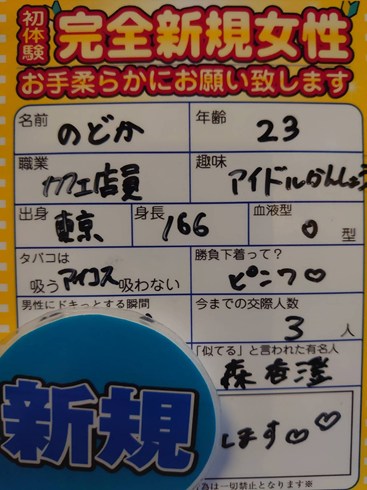 初体験
完全新規女性
お手柔らかにお願い致します
名前 のどか 年齢 23
職業 カフェ店員 趣味 アイドルかんしょう
出身 東京 身長 166 血液型 O型
タバコは 勝負下着って?
吸う アイコス 吸わない ピンク♡
男性にドキっとする瞬間 今までの交際人数
3人
「似てる」と言われた有名人
森香澄
新規
します♡♡
為は一切禁止となります※